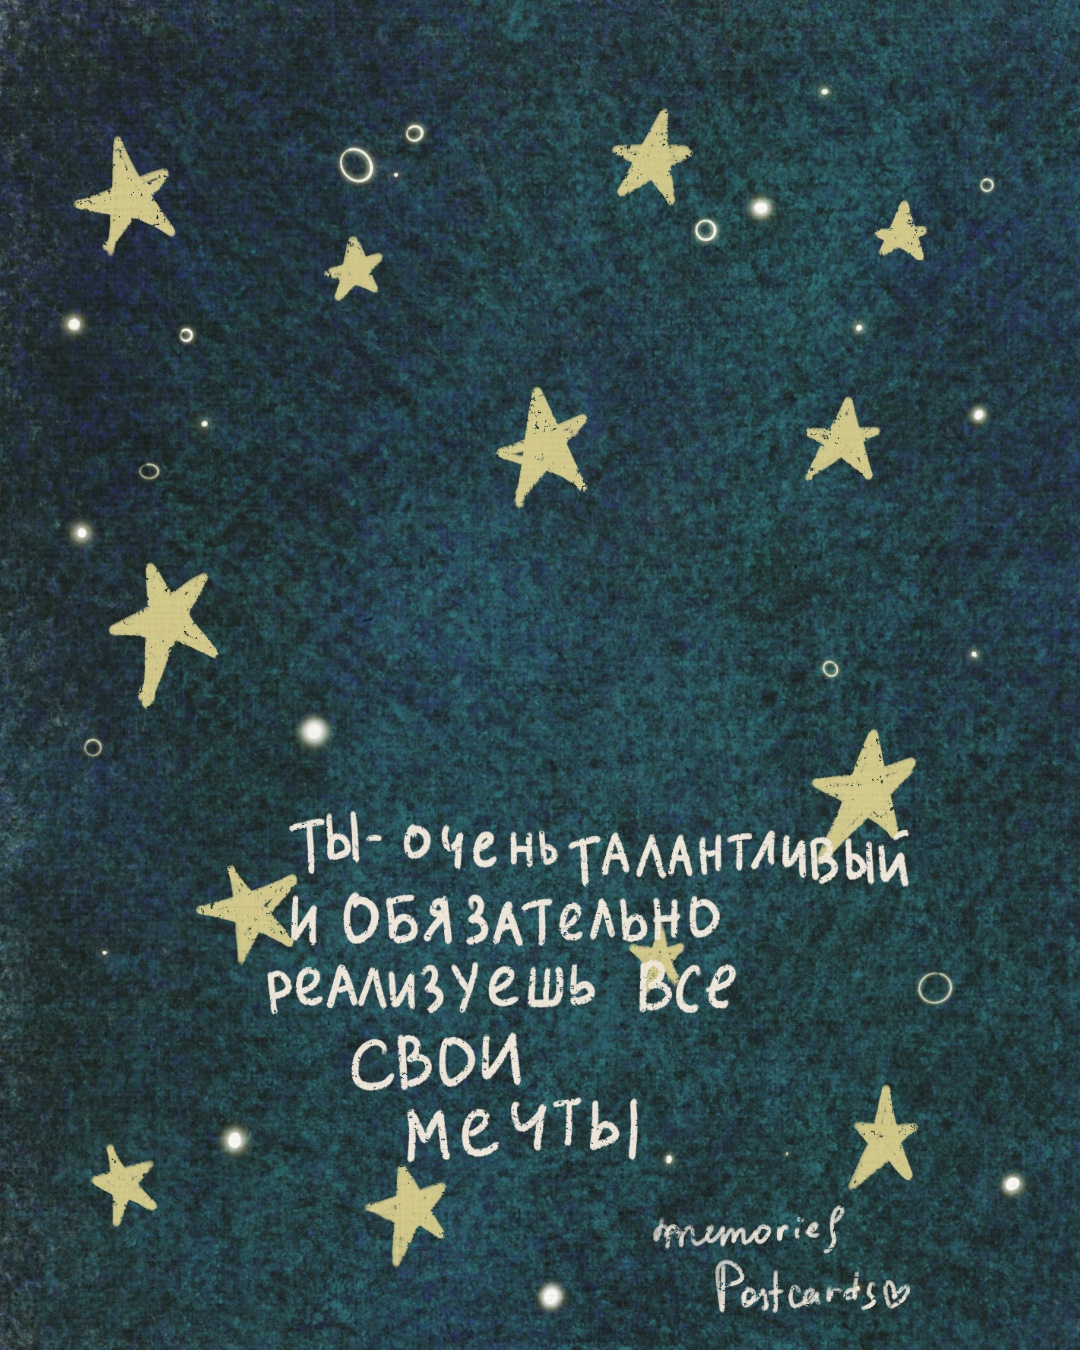 ТЫ- очень ТАЛАНТЛИВЫЙ
и ОБЯЗАТеЛЬНО
РеАЛИЗУеШЬ ВСе
СВОИ
МеЧТЫ
memories
Postcards♡